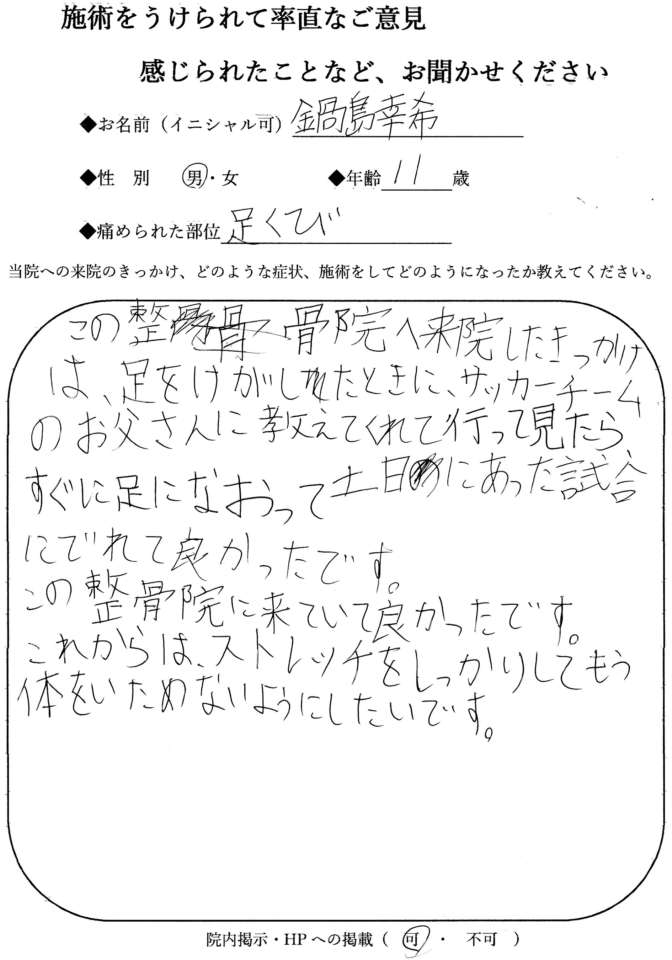 施術をうけられて率直なご意見
感じられたことなど、お聞かせください
◆お名前（イニシャル可）鍋島幸希
◆性　別　男・女　◆年齢 11 歳
◆痛められた部位 足くび
当院への来院のきっかけ、どのような症状、施術をしてどのようになったか教えてください。
この整骨院へ来院したきっかけ
は、足をけがしたときに、サッカーチーム
のお父さんに教えてくれて行って見たら
すぐに足になおって土日にあった試合
にでれて良かったです。
この整骨院に来ていて良かったです。
これからは、ストレッチをしっかりしてもう
体をいためないようにしたいです。
院内掲示・HPへの掲載（　可　・　不可　）